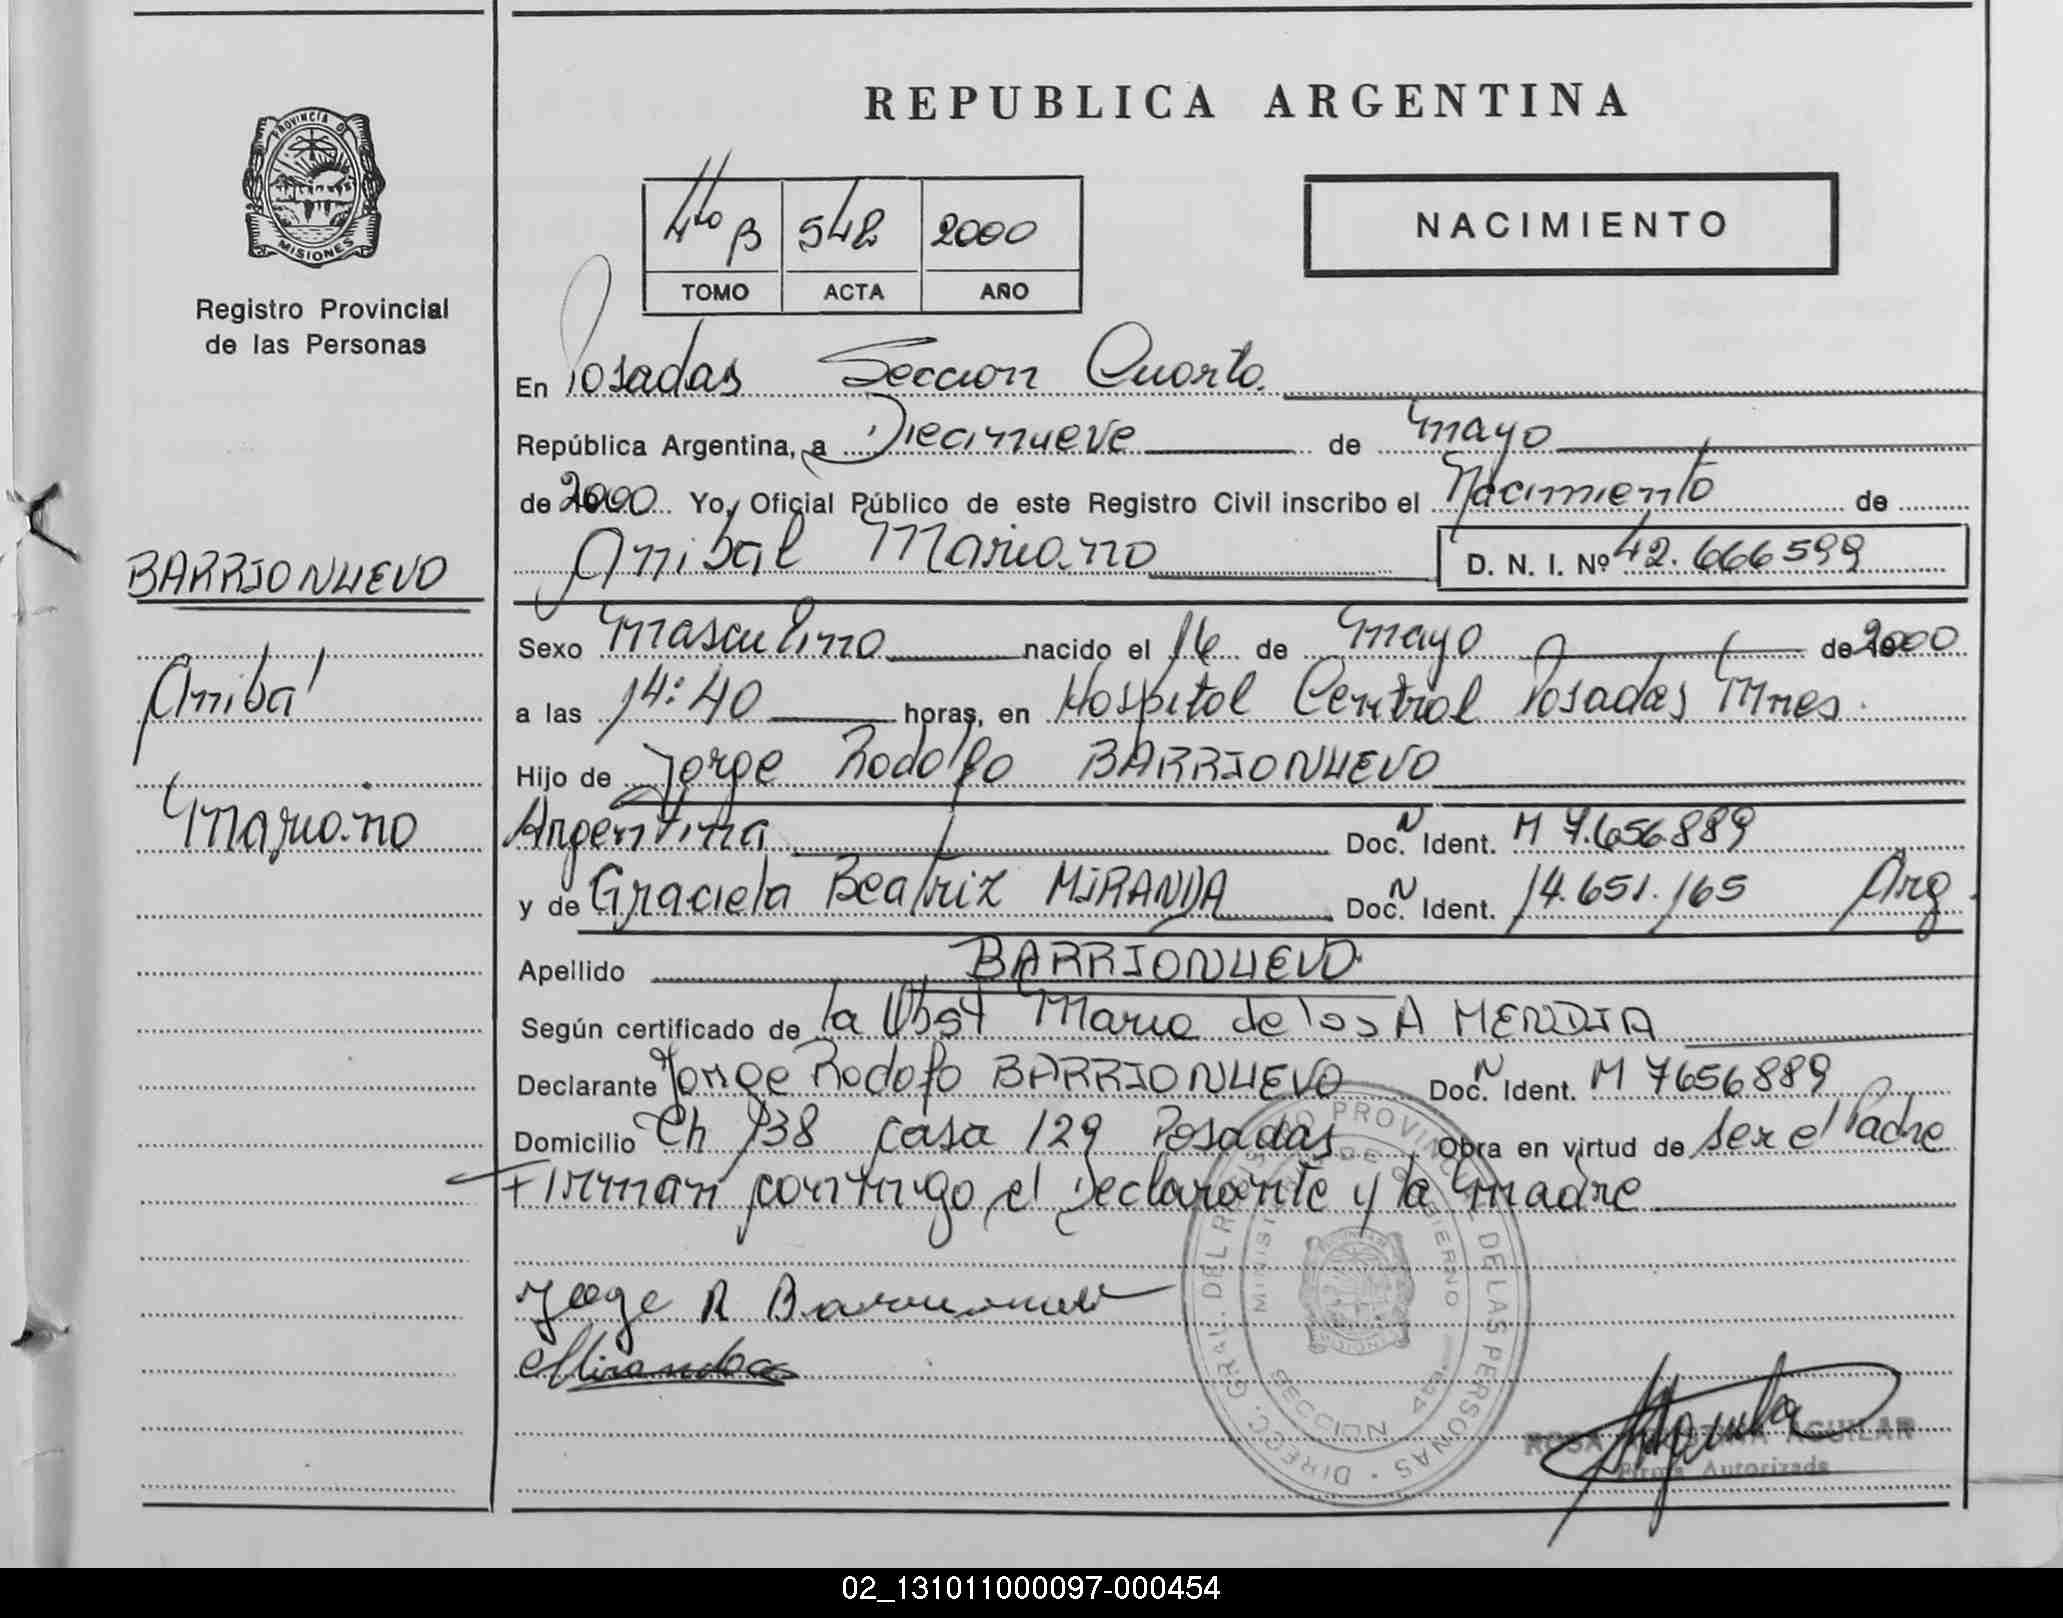 REPUBLICA ARGENTINA
PROVINCIA D
MISIONES
Registro Provincial
de las Personas
NACIMIENTO
4to B 542 2000
TOMO ACTA AÑO
En Posadas Seccion Cuarta
República Argentina, a Diecinueve de mayo
de 2000 Yo, Oficial Público de este Registro Civil inscribo el Nacimiento de
Anibal Mariano D. N. I. Nº 42.666599
BARRIONUEVO
Anibal
Mariano
Sexo Masculino nacido el 16 de mayo de 2000
a las 14:40 horas, en Hospital Central Posadas Mnes.
Hijo de Jorge Rodolfo BARRIONUEVO
Argentina Doc. N Ident. M 7.656.889
y de Graciela Beatriz MIRANDA Doc. N Ident. 14.651.165 Arg.
Apellido BARRIONUEVO
Según certificado de la Obst Maria de los A MENDIA
Declarante Jorge Rodolfo BARRIONUEVO Doc. N Ident. M 7656889
Domicilio Ch 138 casa 129 Posadas Obra en virtud de ser el Padre
Firman conmigo el Declarante y la madre
Jorge R Barrionuevo
Miranda
DIRECC. GRAL. DEL REGISTRO PROVINCIAL DE LAS PERSONAS
MINISTERIO DE GOBIERNO
SECCION 4ta.
ROSA AGUILAR
Firma Autorizada
02_131011000097-000454